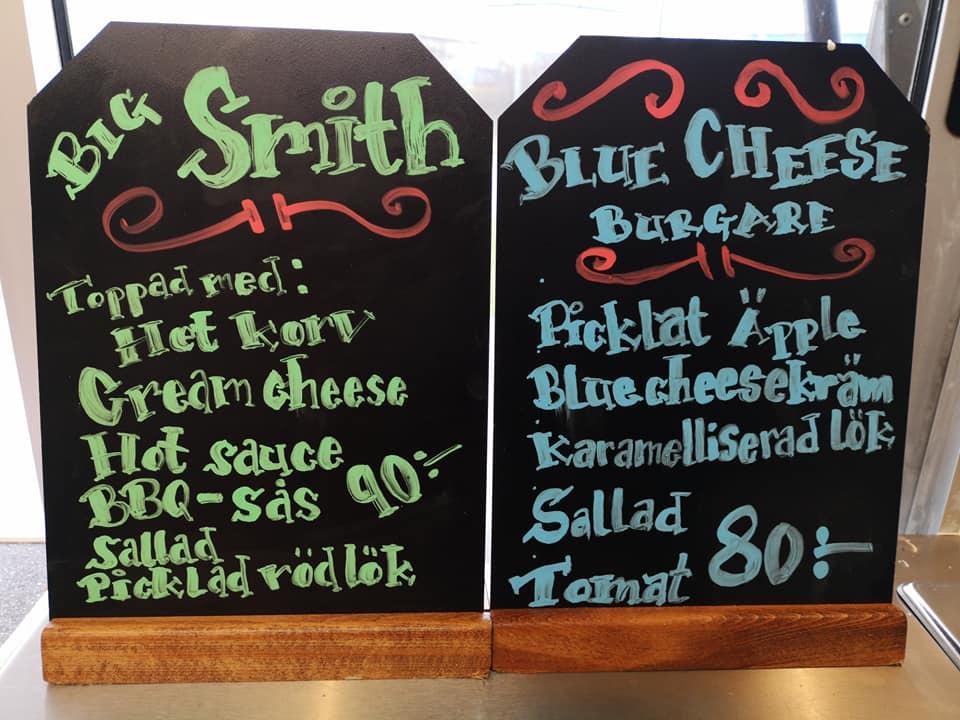 BIG Smith
Toppad med:
Het korv
Cream cheese
Hot sauce
BBQ-sås 90:-
Sallad
Picklad rödlök
BLUE CHEESE
BURGARE
Picklat Äpple
Bluecheesekräm
Karamelliserad lök
Sallad
Tomat 80:-